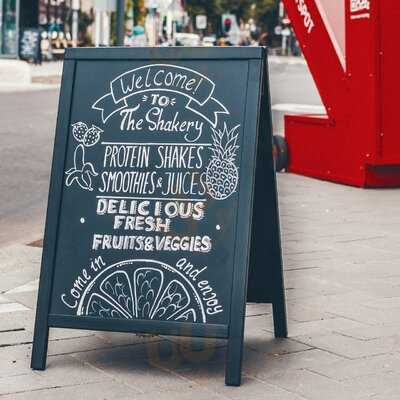 Welcome!
TO
The Shakery
PROTEIN SHAKES
SMOOTHIES & JUICES
DELICIOUS
FRESH
FRUITS&VEGGIES
Come in and enjoy
SPOT